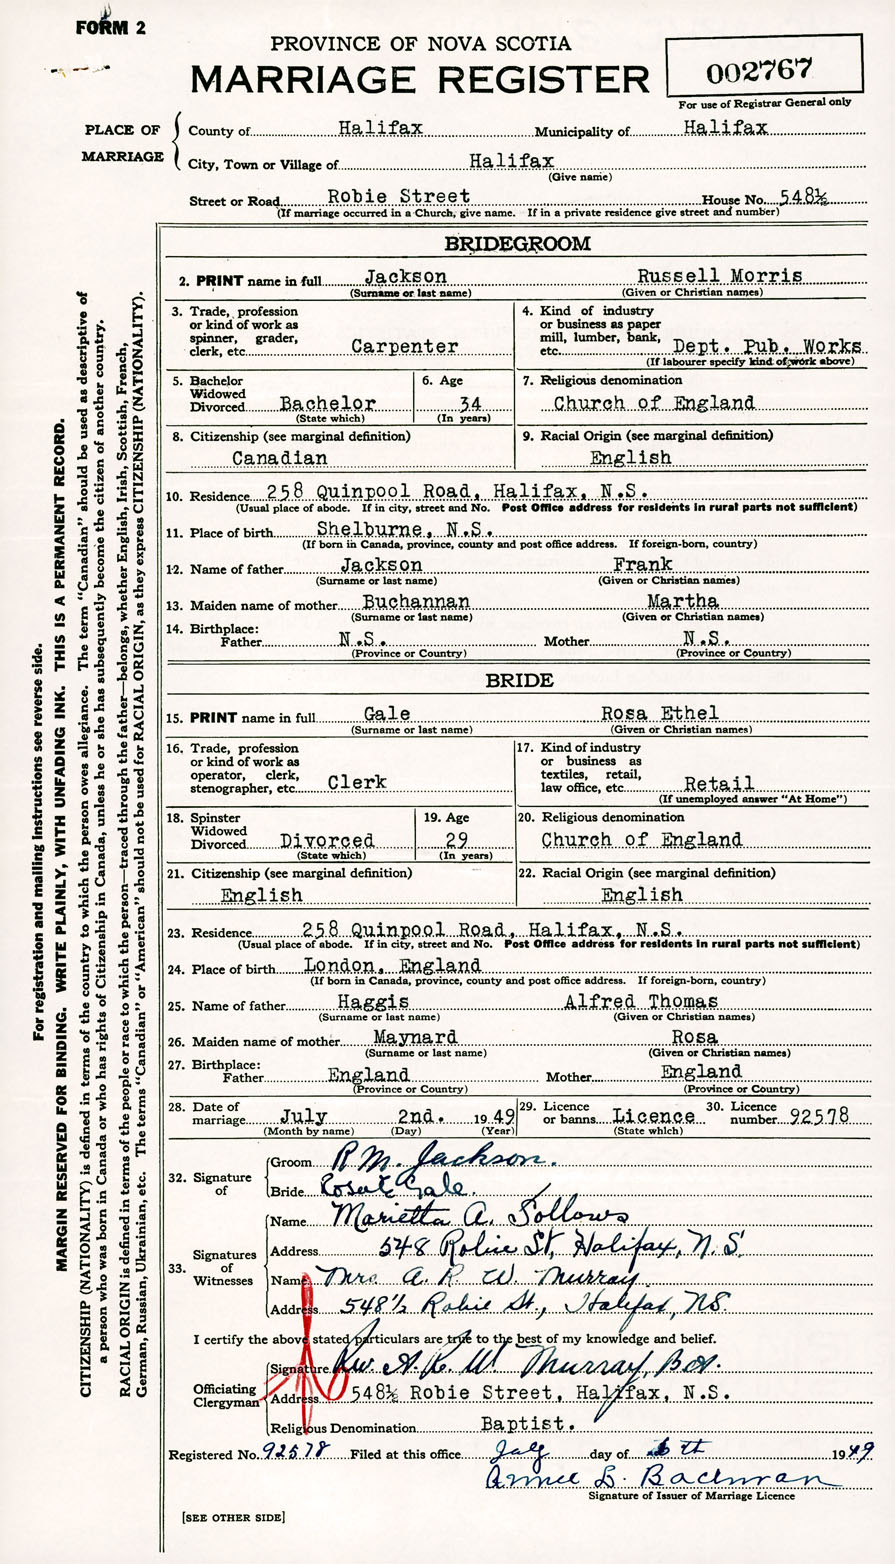 FORM 2
PROVINCE OF NOVA SCOTIA
MARRIAGE REGISTER
002767
For use of Registrar General only
PLACE OF MARRIAGE
County of Halifax Municipality of Halifax
City, Town or Village of Halifax
(Give name)
Street or Road Robie Street House No. 548½
(If marriage occurred in a Church, give name. If in a private residence give street and number)
BRIDEGROOM
2. PRINT name in full Jackson Russell Morris
(Surname or last name) (Given or Christian names)
3. Trade, profession
or kind of work as
spinner, grader,
clerk, etc. Carpenter
4. Kind of industry
or business as paper
mill, lumber, bank,
etc. Dept. Pub. Works
(If labourer specify kind of work above)
5. Bachelor
Widowed
Divorced Bachelor
(State which)
6. Age
34
(In years)
7. Religious denomination
Church of England
8. Citizenship (see marginal definition)
Canadian
9. Racial Origin (see marginal definition)
English
10. Residence 258 Quinpool Road, Halifax, N.S.
(Usual place of abode. If in city, street and No. Post Office address for residents in rural parts not sufficient)
11. Place of birth Shelburne, N.S.
(If born in Canada, province, county and post office address. If foreign-born, country)
12. Name of father Jackson Frank
(Surname or last name) (Given or Christian names)
13. Maiden name of mother Buchannan Martha
(Surname or last name) (Given or Christian names)
14. Birthplace:
Father N.S. Mother N.S.
(Province or Country) (Province or Country)
BRIDE
15. PRINT name in full Gale Rosa Ethel
(Surname or last name) (Given or Christian names)
16. Trade, profession
or kind of work as
operator, clerk,
stenographer, etc. Clerk
17. Kind of industry
or business as
textiles, retail,
law office, etc. Retail
(If unemployed answer "At Home")
18. Spinster
Widowed
Divorced Divorced
(State which)
19. Age
29
(In years)
20. Religious denomination
Church of England
21. Citizenship (see marginal definition)
English
22. Racial Origin (see marginal definition)
English
23. Residence 258 Quinpool Road, Halifax, N.S.
(Usual place of abode. If in city, street and No. Post Office address for residents in rural parts not sufficient)
24. Place of birth London, England
(If born in Canada, province, county and post office address. If foreign-born, country)
25. Name of father Haggis Alfred Thomas
(Surname or last name) (Given or Christian names)
26. Maiden name of mother Maynard Rosa
(Surname or last name) (Given or Christian names)
27. Birthplace:
Father England Mother England
(Province or Country) (Province or Country)
28. Date of
marriage July 2nd. 1949
(Month by name) (Day) (Year)
29. Licence
or banns Licence
(State which)
30. Licence
number 92578
32. Signature of
Groom R.M. Jackson.
Bride Rosa E Gale.
33. Signatures of Witnesses
Name Marietta A. Follows
Address 548 Robie St, Halifax, N.S.
Name Mrs A. R. W. Murray.
Address 548½ Robie St., Halifax, N.S.
I certify the above stated particulars are true to the best of my knowledge and belief.
Officiating Clergyman
Signature Rev A. R. W. Murray, B.A.
Address 548½ Robie Street, Halifax, N.S.
Religious Denomination Baptist.
Registered No. 92578 Filed at this office July day of 6th 1949
Signature of Issuer of Marriage Licence
[SEE OTHER SIDE]
For registration and mailing instructions see reverse side.
MARGIN RESERVED FOR BINDING. WRITE PLAINLY, WITH UNFADING INK. THIS IS A PERMANENT RECORD.
CITIZENSHIP (NATIONALITY) is defined in terms of the country to which the person owes allegiance. The term "Canadian" should be used as descriptive of
a person who was born in Canada or who has rights of Citizenship in Canada, unless he or she has subsequently become the citizen of another country.
RACIAL ORIGIN is defined in terms of the people or race to which the person—traced through the father—belongs, whether English, Irish, Scottish, French,
German, Russian, Ukrainian, etc. The terms "Canadian" or "American" should not be used for RACIAL ORIGIN, as they express CITIZENSHIP (NATIONALITY).